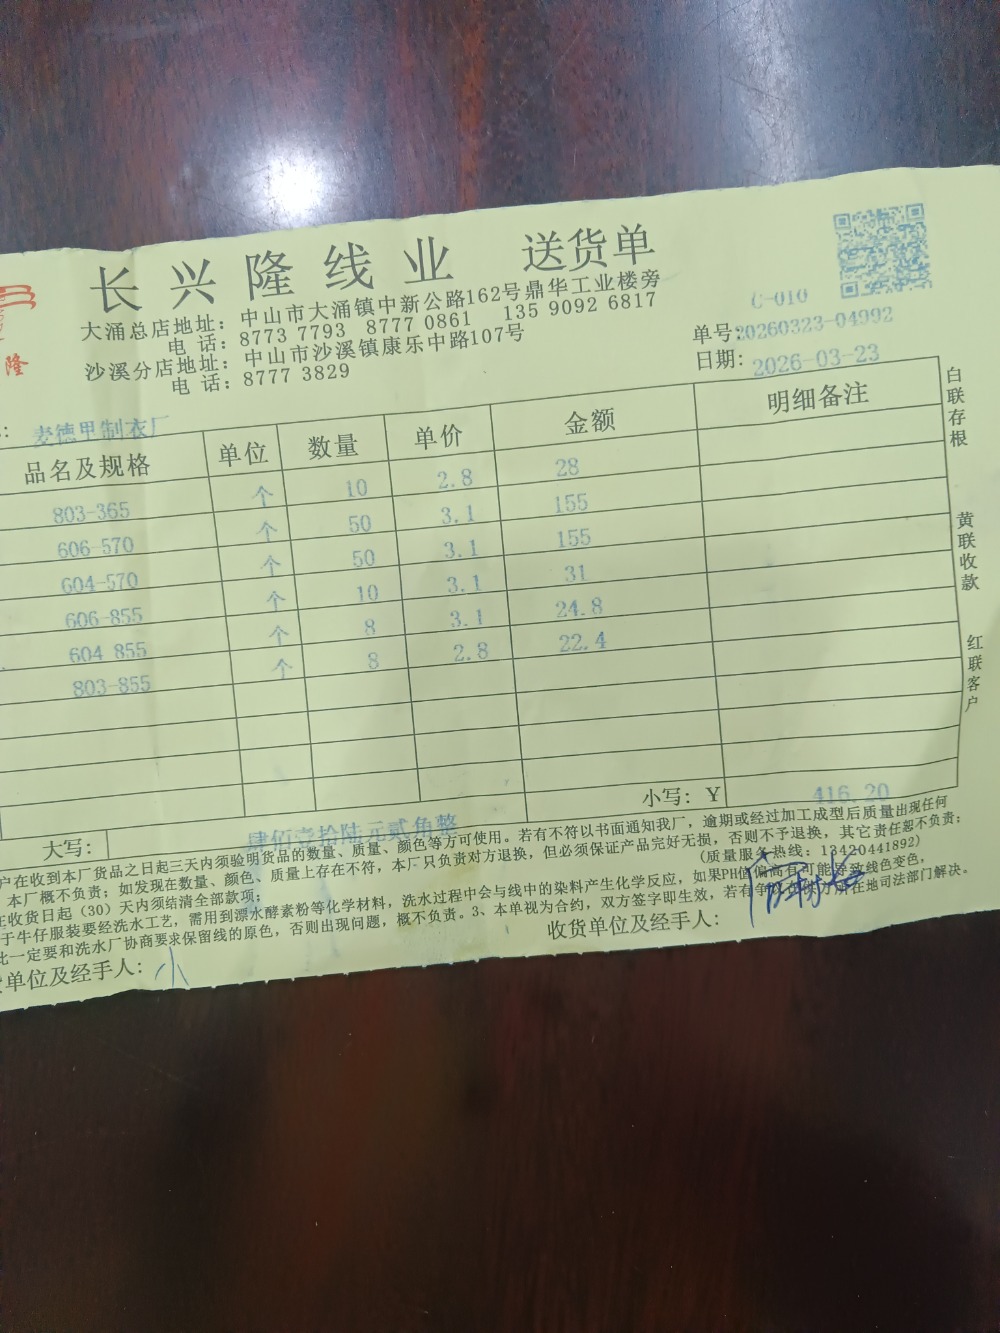 隆
长兴隆线业 送货单
大涌总店地址：中山市大涌镇中新公路162号鼎华工业楼旁
电 话：8773 7793 8777 0861 135 9092 6817
沙溪分店地址：中山市沙溪镇康乐中路107号
电 话：8777 3829
C-010
单号:20260323-04992
日期: 2026-03-23
: 麦德甲制衣厂
品名及规格 单位 数量 单价 金额 明细备注
803-365 个 10 2.8 28
606-570 个 50 3.1 155
604-570 个 50 3.1 155
606-855 个 10 3.1 31
604 855 个 8 3.1 24.8
803-855 个 8 2.8 22.4
小写：￥ 416.20
大写： 肆佰壹拾陆元贰角整
白联存根
黄联收款
红联客户
户在收到本厂货品之日起三天内须验明货品的数量、质量、颜色等方可使用。若有不符以书面通知我厂，逾期或经过加工成型后质量出现任何
本厂概不负责；如发现在数量、颜色、质量上存在不符，本厂只负责对方退换，但必须保证产品完好无损，否则不予退换，其它责任恕不负责；
在收货日起（30）天内须结清全部款项； （质量服务热线：13420441892）
于牛仔服装要经洗水工艺，需用到漂水酵素粉等化学材料，洗水过程中会与线中的染料产生化学反应，如果PH值偏高有可能导致线色变色，
此一定要和洗水厂协商要求保留线的原色，否则出现问题，概不负责。3、本单视为合约，双方签字即生效，若有 在地司法部门解决。
单位及经手人： 小 收货单位及经手人：